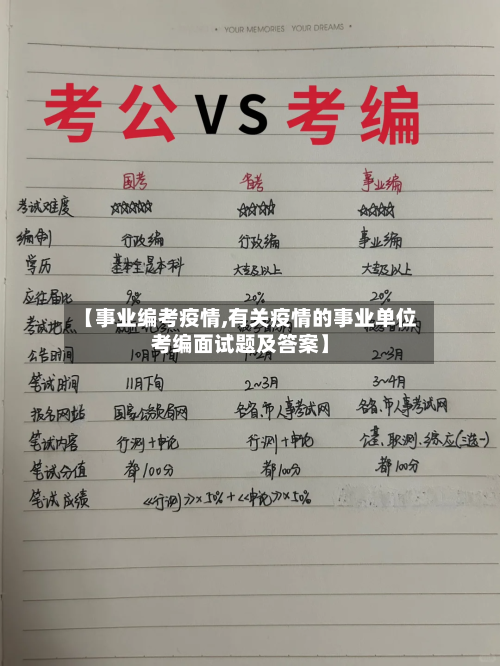 YOUR MEMORIES YOUR DREAMS
考公 VS 考编
国考 省考 事业编
考试难度 ☆☆☆☆☆ ☆☆☆☆ ☆☆☆☆
编制 行政编 行政编 事业编
学历 基本全是本科 大专及以上 大专及以上
应往届比 9% 20% 20%
【事业编考疫情,有关疫情的事业单位
考试地点
考编面试题及答案】
公告时间 10月中旬 1~2月 2~3月
笔试时间 11月下旬 2~3月 3~4月
报名网站 国家公务员局网 各省、市人事考试网 各省、市人事考试网
笔试内容 行测+申论 行测+申论 公基、职测、综应(三选一)
笔试分值 都100分 都100分 都100分
笔试成绩 《行测》×50%+《申论》×50%